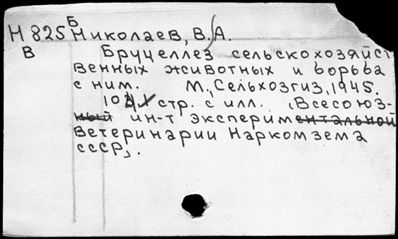 Б
Н 825 Николаев, В.А.
В Бруцеллез сельскохозяйст
венных животных и борьба
с ним. М., Сельхозгиз, 1945.
102 стр. с илл. (Всесоюз-
ный ин-т экспериментальной
ветеринарии Наркомзема
СССР).